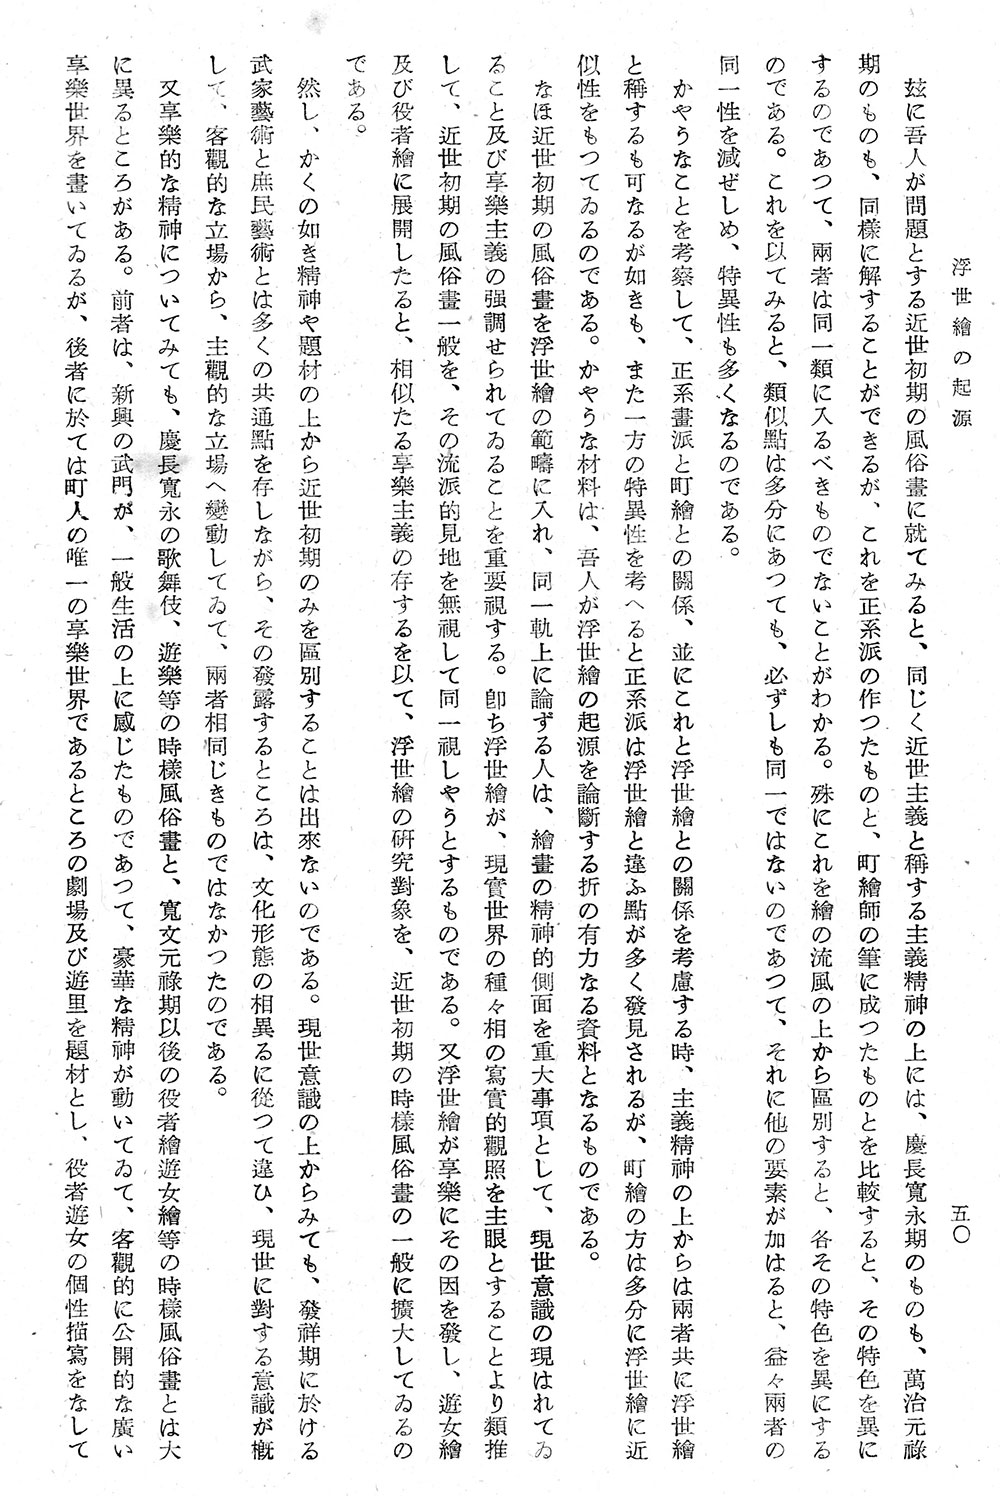 浮世繪の起源
五〇
玆に吾人が問題とする近世初期の風俗畫に就てみると、同じく近世主義と稱する主義精神の上には、慶長寬永期のものも、萬治元祿
期のものも、同樣に解することができるが、これを正系派の作つたものと、町繪師の筆に成つたものとを比較すると、その特色を異に
するのであつて、兩者は同一類に入るべきものでないことがわかる。殊にこれを繪の流風の上から區別すると、各その特色を異にする
のである。これを以てみると、類似點は多分にあつても、必ずしも同一ではないのであつて、それに他の要素が加はると、益々兩者の
同一性を減ぜしめ、特異性も多くなるのである。
かやうなことを考察して、正系畫派と町繪との關係、並にこれと浮世繪との關係を考慮する時、主義精神の上からは兩者共に浮世繪
と稱するも可なるが如きも、また一方の特異性を考へると正系派は浮世繪と違ふ點が多く發見されるが、町繪の方は多分に浮世繪に近
似性をもつてゐるのである。かやうな材料は、吾人が浮世繪の起源を論斷する折の有力なる資料となるものである。
なほ近世初期の風俗畫を浮世繪の範疇に入れ、同一軌上に論ずる人は、繪畫の精神的側面を重大事項として、現世意識の現はれてゐ
ること及び享樂主義の强調せられてゐることを重要視する。卽ち浮世繪が、現實世界の種々相の寫實的觀照を主眼とすることより類推
して、近世初期の風俗畫一般を、その流派的見地を無視して同一視しやうとするものである。又浮世繪が享樂にその因を發し、遊女繪
及び役者繪に展開したると、相似たる享樂主義の存するを以て、浮世繪の硏究對象を、近世初期の時樣風俗畫の一般に擴大してゐるの
である。
然し、かくの如き精神や題材の上から近世初期のみを區別することは出來ないのである。現世意識の上からみても、發祥期に於ける
武家藝術と庶民藝術とは多くの共通點を存しながら、その發露するところは、文化形態の相異るに從つて違ひ、現世に對する意識が槪
して、客觀的な立場から、主觀的な立場へ變動してゐて、兩者相同じきものではなかつたのである。
又享樂的な精神についてみても、慶長寬永の歌舞伎、遊樂等の時樣風俗畫と、寬文元祿期以後の役者繪遊女繪等の時樣風俗畫とは大
に異るところがある。前者は、新興の武門が、一般生活の上に感じたものであつて、豪華な精神が動いてゐて、客觀的に公開的な廣い
享樂世界を畫いてゐるが、後者に於ては町人の唯一の享樂世界であるところの劇場及び遊里を題材とし、役者遊女の個性描寫をなして